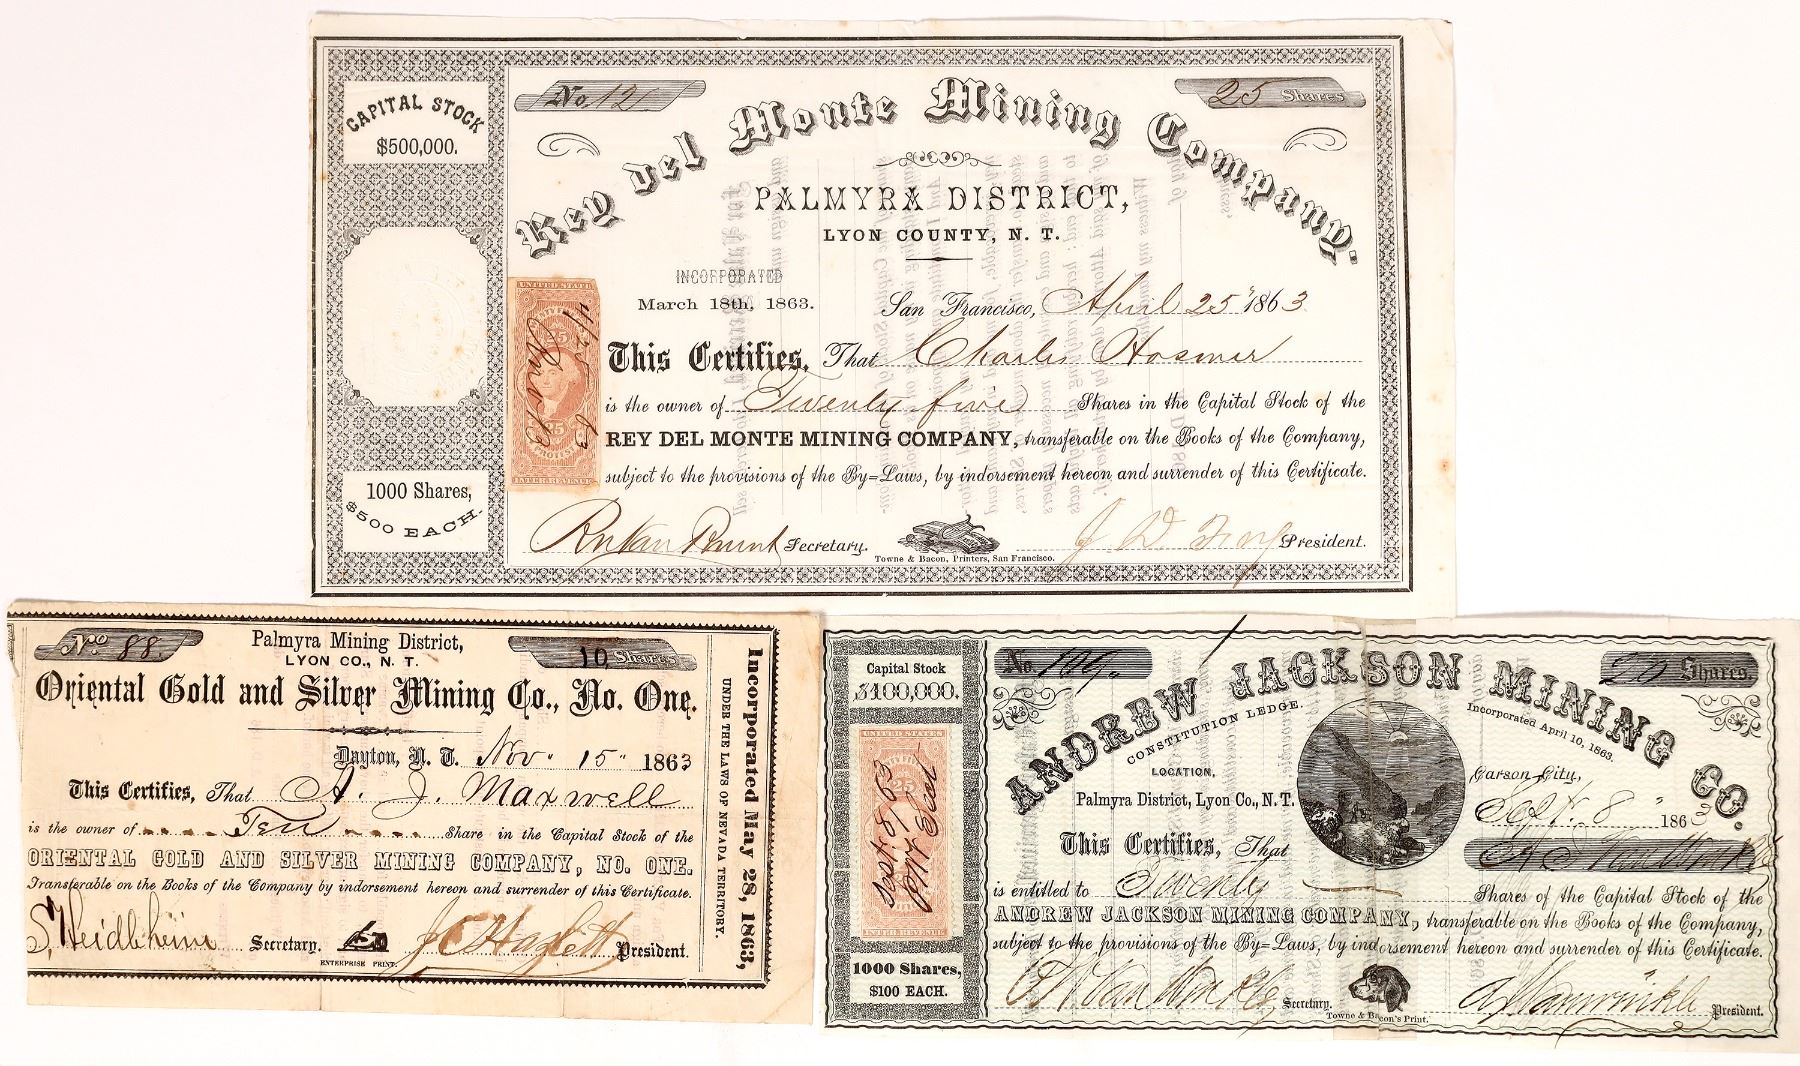 CAPITAL STOCK
$500,000.
1000 Shares,
$500 EACH.
No. 12
25 Shares
Rey del Monte Mining Company.
PALMYRA DISTRICT,
LYON COUNTY, N. T.
INCORPORATED
March 18th, 1863.
San Francisco, April 25" 1863
This Certifies, That Charles Hosmer
is the owner of Twenty five Shares in the Capital Stock of the
REY DEL MONTE MINING COMPANY, transferable on the Books of the Company,
subject to the provisions of the By=Laws, by indorsement hereon and surrender of this Certificate.
Secretary.
Towne & Bacon, Printers, San Francisco.
President.
UNITED STATES
25
25
PROTEST
INTER. REVENUE
4/25 63
No. 88.
Palmyra Mining District,
LYON CO., N. T.
10 Shares
Oriental Gold and Silver Mining Co., No. One.
Dayton, N. T. Nov. 15" 1863
This Certifies, That A. J. Maxwell
is the owner of Ten Share in the Capital Stock of the
ORIENTAL GOLD AND SILVER MINING COMPANY, NO. ONE.
Transferable on the Books of the Company by indorsement hereon and surrender of this Certificate.
S. Heidlheim Secretary.
ENTERPRISE PRINT.
J C Hazlett President.
UNDER THE LAWS OF NEVADA TERRITORY.
Incorporated May 28, 1863,
Capital Stock
$100,000.
UNITED STATES
Sept. 8/63
INTER. REVENUE
1000 Shares,
$100 EACH.
No. 109.
20 Shares.
ANDREW JACKSON MINING CO.
CONSTITUTION LEDGE.
Incorporated April 10, 1863.
LOCATION,
Palmyra District, Lyon Co., N. T.
Carson City,
Sept. 8" 1863
This Certifies, That
is entitled to Twenty Shares of the Capital Stock of the
ANDREW JACKSON MINING COMPANY, transferable on the Books of the Company,
subject to the provisions of the By=Laws, by indorsement hereon and surrender of this Certificate.
Van Winkle Secretary.
Towne & Bacon's Print.
President.